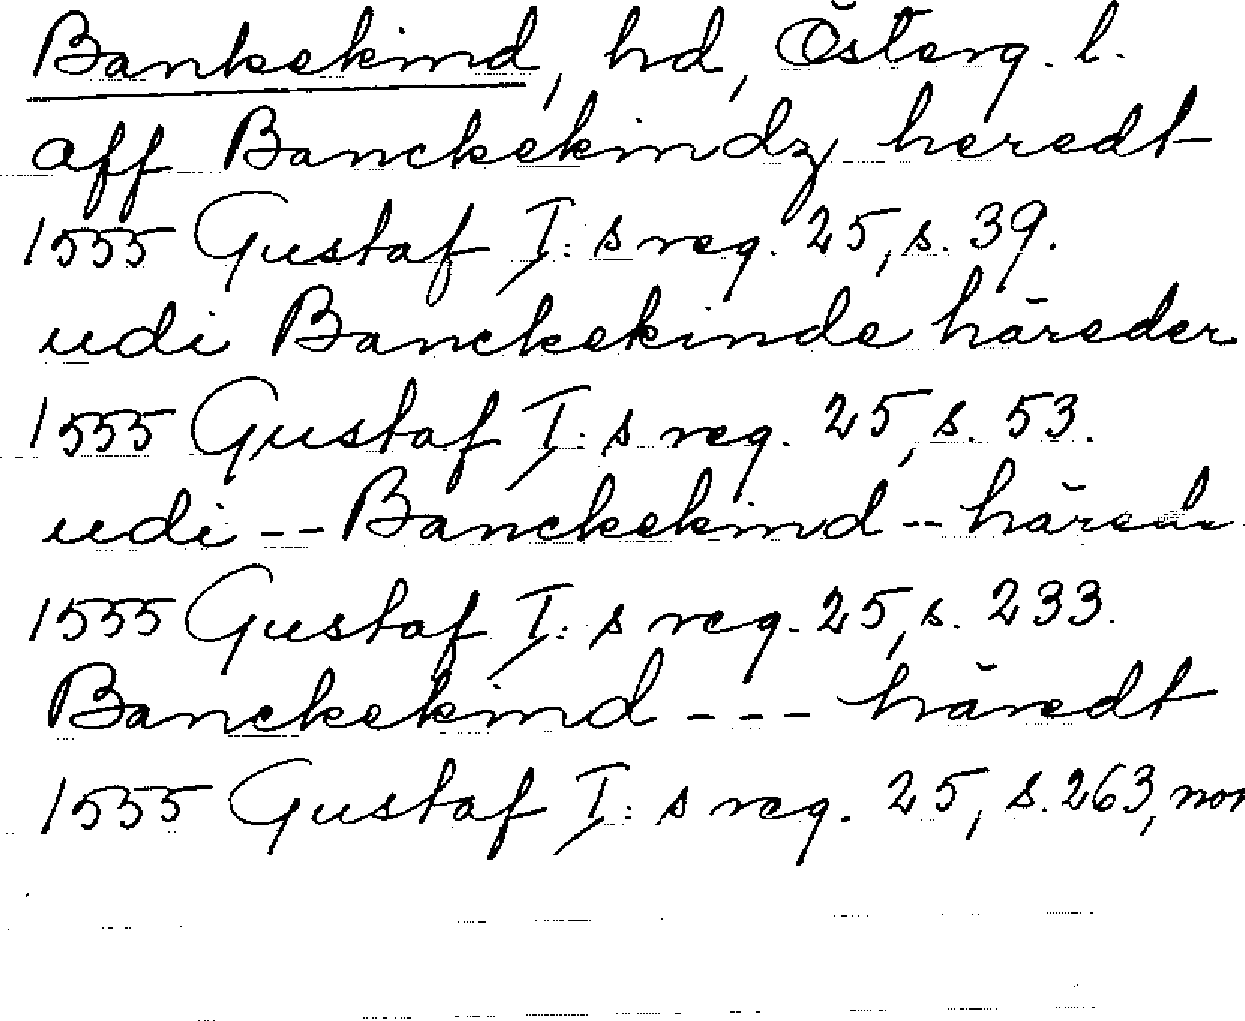 Bankekind, hd, Österg. l.
aff Banckekindz heredt
1555 Gustaf I:s reg. 25, s. 39.
udi Banckekinde häreder
1555 Gustaf I:s reg. 25, s. 53.
udi -- Banckekind --
1555 Gustaf I:s reg. 25, s. 233.
Banckekind --- häredt
1555 Gustaf I:s reg. 25, s. 263, nor